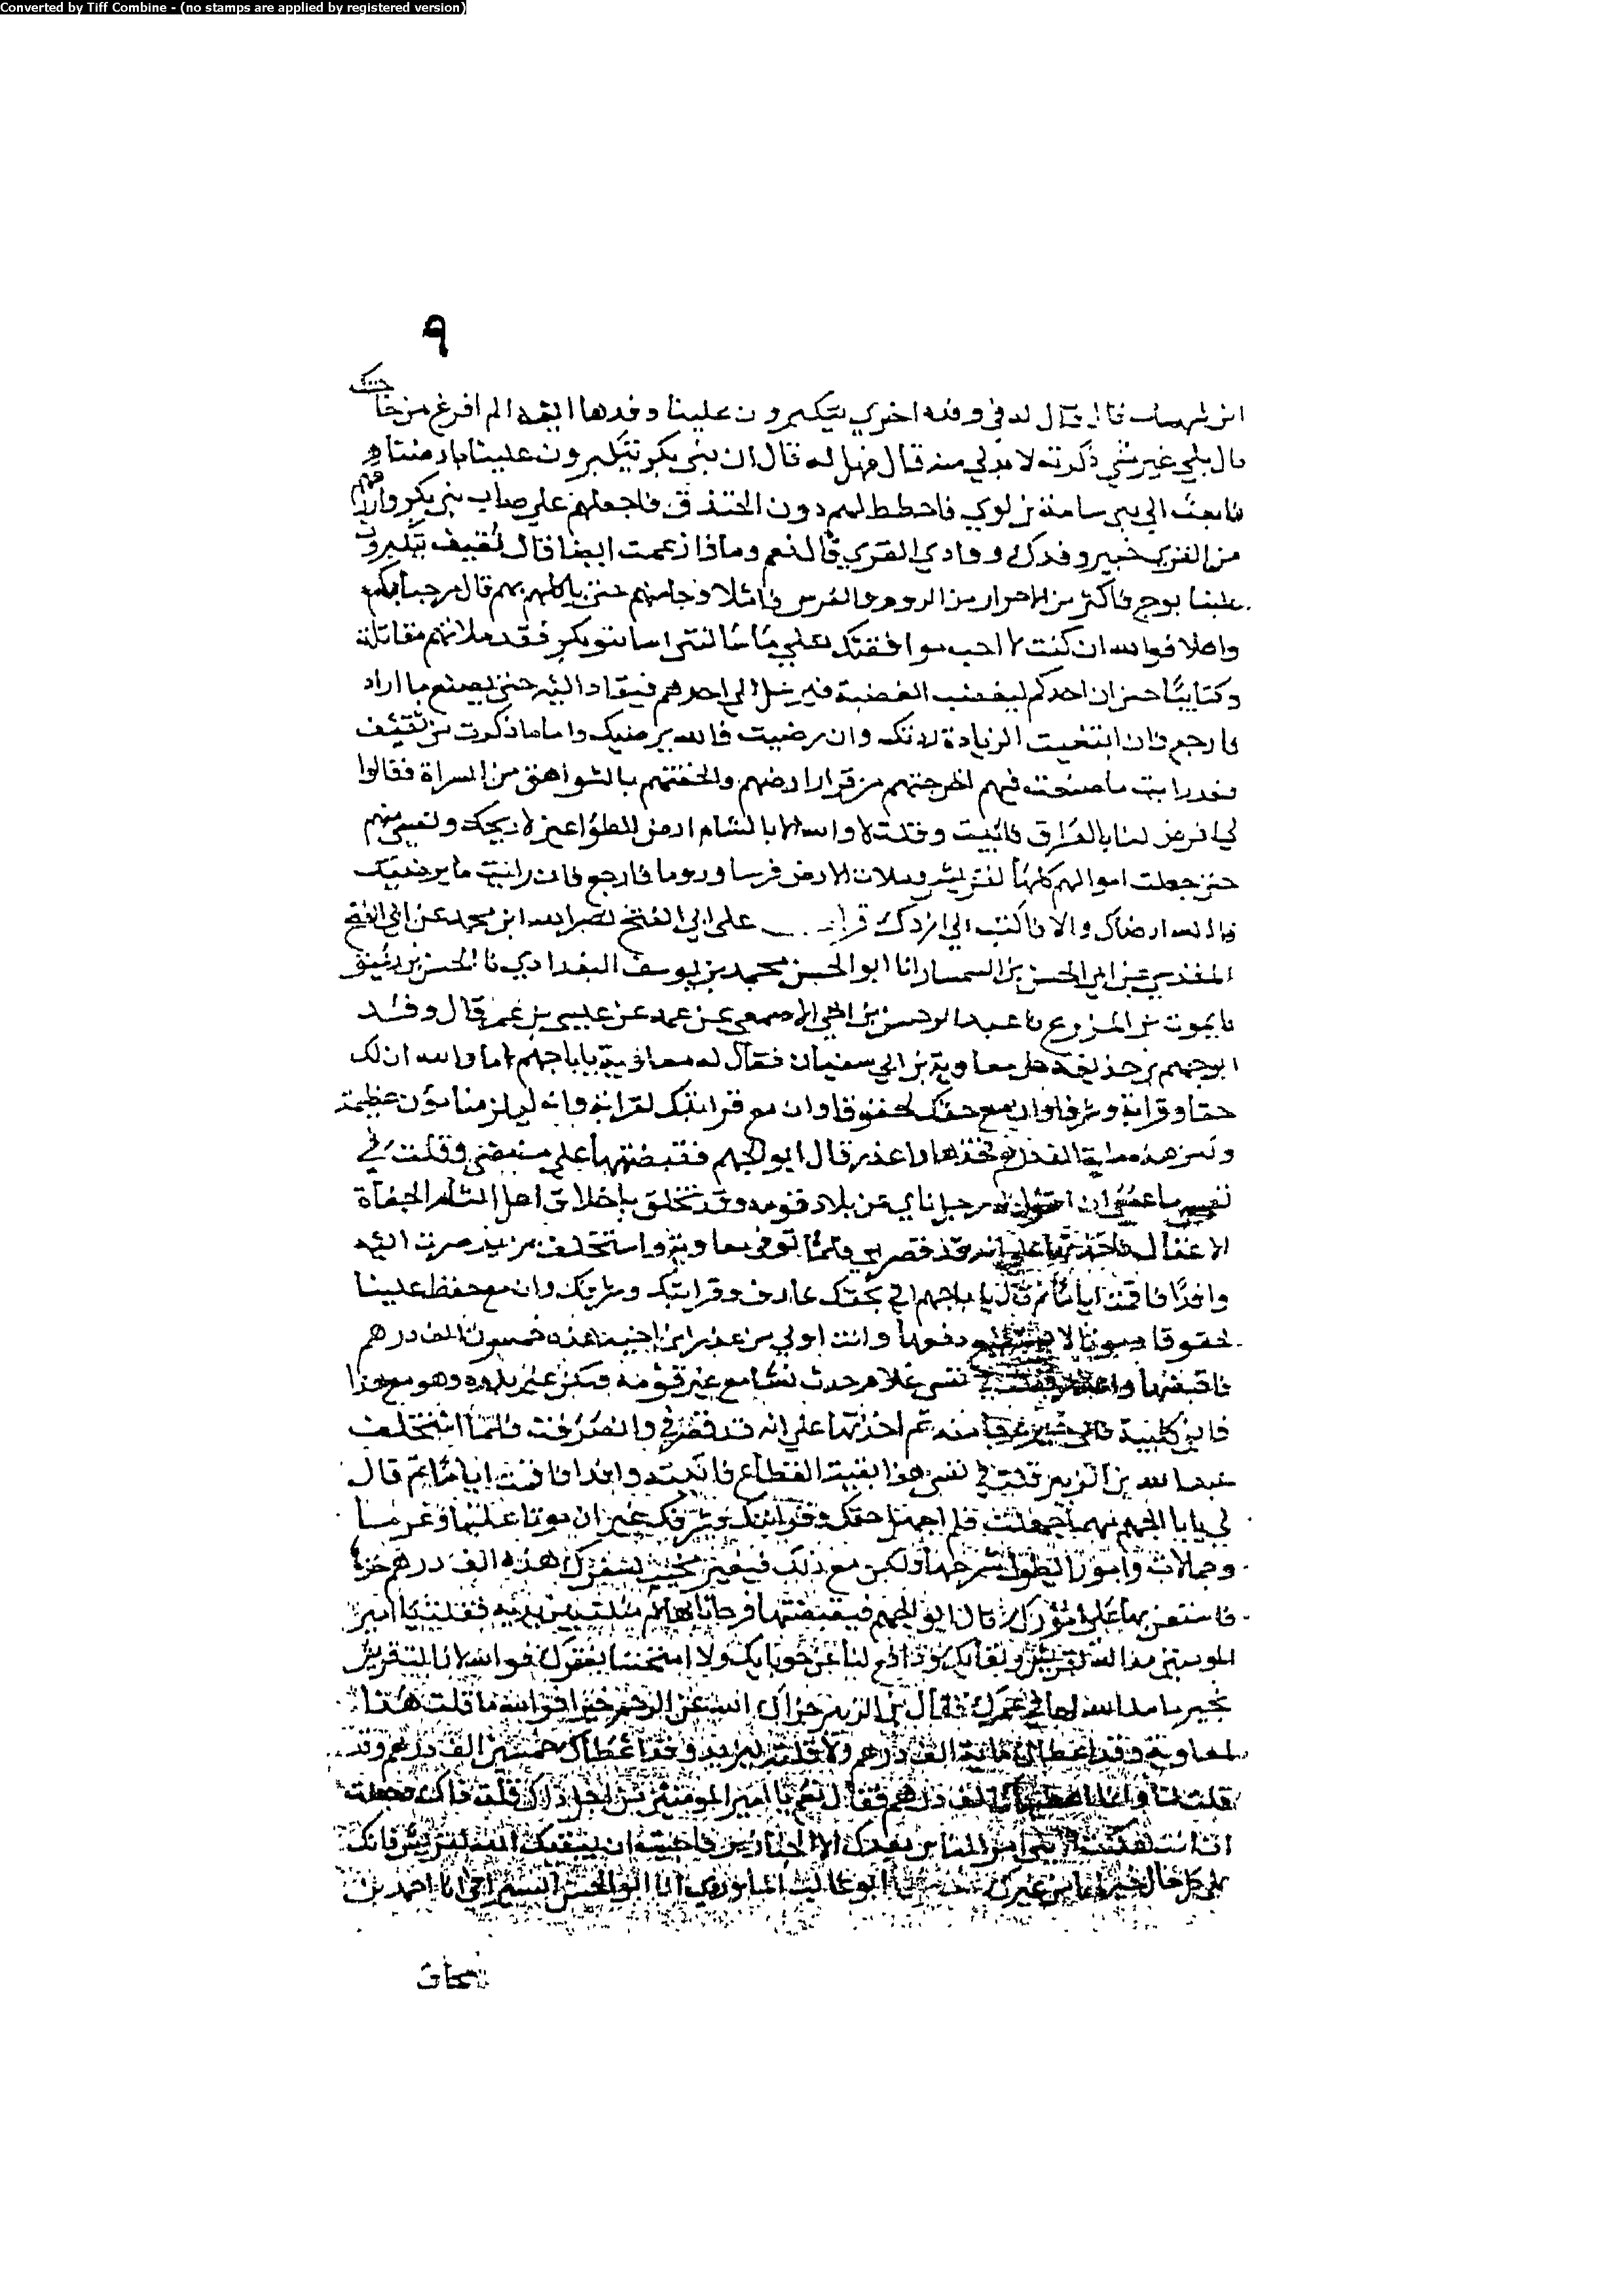 Converted by Tiff Combine - (no stamps are applied by registered version)
٩
ابن شهاب قال قال له في وفده اخرى يتكبرون علينا وفدها اليه الم افرغ من حاجتك
قال بلى غير شي ذكرته لا بد لي منه قال فهل له قال ان بني بكر تتكبرون علينا بارضنا
فابعث الى بني سامة بن لوي فاخطط لهم دون الخندق فاجعلهم على صاب بني بكر وارزقهم
من القرى خيبر وفدك ووادي القرى قال نعم وماذا زعمت ايضا قال ثقيف يتكبرون
علينا بوج فاكثر من الاحرار من الروم والفرس فاملا وجا منهم حتى ياكلهم بهم قال مرحبا بكم
واهلا فوالله ان كنت لا احب موافقتك على ما سالتني اما بنو بكر فقد ملاتهم مقاتلة
وكتايبا حتى ان احدكم ليغضب الغضبة فيرسل الى احدهم فينقاد اليه حتى يصنع ما اراد
فارجع فان ابتغيت الزيادة زدتك وان رضيت فالله يرضيك واما ما ذكرت من ثقيف
فقد رايت ما صنعت فيهم اخرجتهم من قرار ارضهم والحقتهم بالشواهق من السراة فقالوا
لي افرض لنا بالعراق فابيت وقلت لا والله الا بالشام ارض الطواعين لاريحك ونفسي منهم
حتى جعلت اموالهم كلها لقريش وملات الارض فرسا وروما فارجع فان رايت ما يرضيك
فالله ارضاك والا فاكتب الي ازدك قرات على ابي الفتح نصر الله ابن محمد عن ابي الفتح
المقدسي عن ابي الحسن بن السمسار انا ابو الحسن محمد بن يوسف البغدادي نا الحسن بن رشيق
نا يموت بن المزرع نا عبد الرحمن بن اخي الاصمعي عن عمه عن عيسى بن عمر قال وفد
ابو جهم بن حذيفة على معاوية بن ابي سفيان فقال له معاوية يا ابا جهم اما والله ان لك
حقا وقرابة وشرفا وان مع حقك لحقوقا وان مع قرابتك لقرابة وانه ليلزمنا مؤن عظيمة
ولكن هذه ماية الف درهم فخذها واعذر قال ابو الجهم فقبضتها على مضض وقلت في
نفسي ما عسى ان اقول له رجل ناي عن بلاد قومه وقد تخلق باخلاق اهل الشام الجفاة
الاغفال فاخذتها على انه قد قصر بي فلما توفي معاوية واستخلف يزيد صرت اليه
وافدا فاقمت اياما ثم قال يا ابا جهم اني بحقك عارف وقرابتك وشرفك وان مع حفظ علينا
لحقوقا ومؤنا لا نستطيع دفعها وانت اولى من عذر ابن اخيه هذه خمسون الف درهم
فاقبضها واعذر فقلت في نفسي غلام حدث نشا مع غير قومه وسكن غير بلاده وهو مع هذا
فابن كلبية فاي خير يرجا منه ثم اخذتها على انه قد قصر بي وانصرفت فلما استخلف
عبد الله بن الزبير قلت في نفسي هذا بقية القطاع فاتيته وافدا فاقمت اياما ثم قال
لي يا ابا الجهم مهما جهلت فلم اجهل حقك وقرابتك وشرفك غير ان مؤنا علينا وغرما
وحمالات وامورا يطول شرحها ولكن مع ذلك فغير مخيب لسفرك هذه الف درهم خذها
فاستعن بها على امورك قال ابو الجهم فقبضتها فرحا بها ثم مثلت بين يديه فقلت يا امير
المومنين مد الله لقريش في بقايك ودافع لنا عن حوبايك ولا امتحننا بفقدك فوالله لا زالت قريش
بخير ما مد الله لها في عمرك فقال بن الزبير جزاك الله عن الرحم خيرا فوالله ما قلت هذا
لمعاوية وقد اعطاك ماية الف درهم ولا قلته ليزيد وقد اعطاك خمسين الف درهم وقد
قلت لنا وانما اعطيناك الف درهم فقال نعم يا امير المومنين من اجل ذاك قلته ذاك
ان انت هلكت ان يلي امر الناس بعدك الا الخنازير فاحببت ان يبقيك الله لقريش فانك
على كل حال خير لنا من غيرك ابو غالب الماوردي انا ابو الحسن السيرافي انا احمد بن
اسحاق